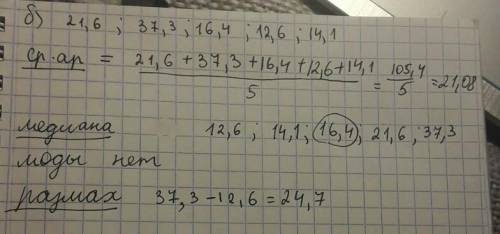 б) 21,6 ; 37,3 ; 16,4 ; 12,6 ; 14,1
ср.ар = (21,6 + 37,3 + 16,4 + 12,6 + 14,1)/5 = 105,4/5 = 21,08
медиана 12,6 ; 14,1 ; 16,4 ; 21,6 ; 37,3
моды нет
размах 37,3 - 12,6 = 24,7